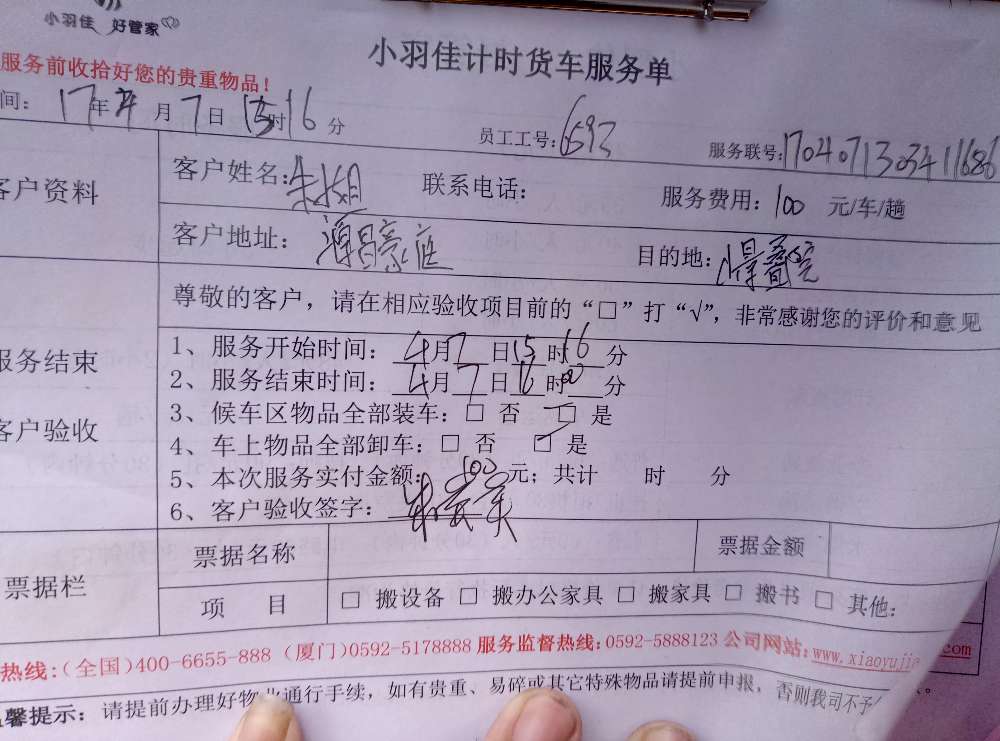 小羽佳 好管家
小羽佳计时货车服务单
服务前收拾好您的贵重物品！
间： 17年4月7日15时16分
员工工号：6593
服务联号：1704071303411686
客户资料
客户姓名：朱小姐 联系电话： 服务费用：100 元/车/趟
客户地址：源昌豪庭 目的地：
尊敬的客户，请在相应验收项目前的“□”打“√”，非常感谢您的评价和意见
服务结束
客户验收
1、服务开始时间：4月7日15时16分
2、服务结束时间：4月7日16时00分
3、候车区物品全部装车：□ 否 □ 是
4、车上物品全部卸车：□ 否 □ 是
5、本次服务实付金额：100元；共计 时 分
6、客户验收签字：
票据栏
票据名称 票据金额
项 目 □ 搬设备 □ 搬办公家具 □ 搬家具 □ 搬书 □ 其他：
热线：（全国）400-6655-888 （厦门）0592-5178888 服务监督热线：0592-5888123 公司网站：www.xiaoyujia.com
温馨提示：请提前办理好物业通行手续，如有贵重、易碎或其它特殊物品请提前申报，否则我司不予